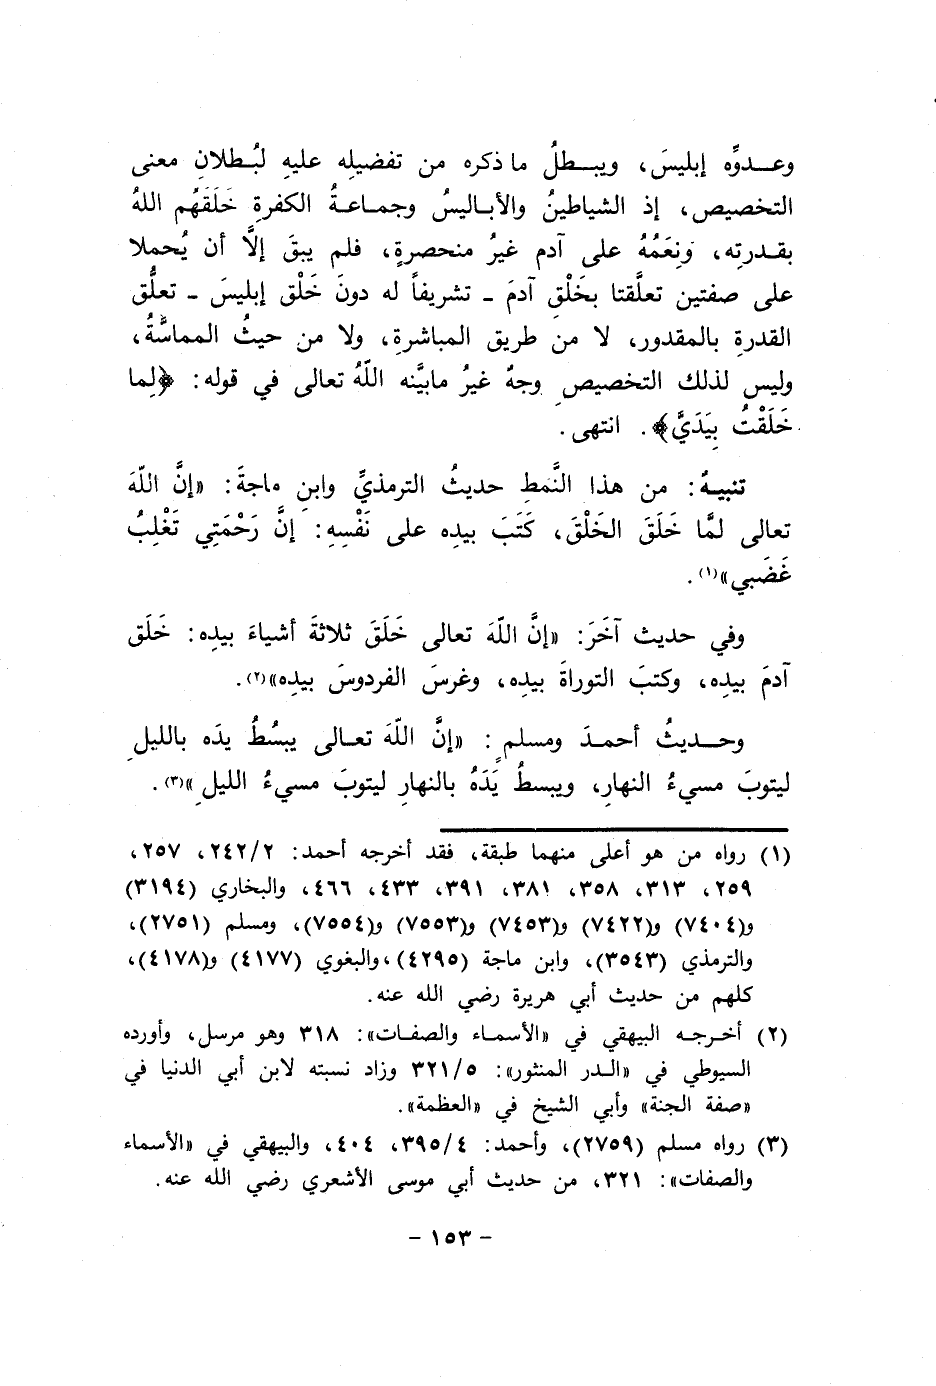 وعـدوِّه إبليسَ، ويبـطلُ ما ذكره من تفضيلِه عليهِ لبُطلانِ معنى
التخصيص، إذ الشياطينُ والأباليسُ وجماعةُ الكفرةِ خَلَقَهُم اللهُ
بقدرتِه، وَنِعَمُهُ على آدم غيرُ منحصرةٍ، فلم يبقَ إلَّا أن يُحملا
على صفتين تعلَّقتا بخَلْقِ آدمَ ـ تشريفاً له دونَ خَلْق إبليسَ ـ تعلُّق
القدرةِ بالمقدور، لا من طريق المباشرةِ، ولا من حيثُ المماسَّةُ،
وليس لذلك التخصيصِ وجهٌ غيرُ مابيَّنه اللّهُ تعالى في قوله: ﴿لِما
خَلَقْتُ بِيَدَيَّ﴾. انتهى.
تنبيهٌ: من هذا النَّمطِ حديثُ الترمذيِّ وابنِ ماجةَ: «إنَّ اللّهَ
تعالى لمَّا خَلَقَ الخَلْقَ، كَتَبَ بيدِه على نَفْسِهِ: إنَّ رَحْمَتِي تَغْلِبُ
غَضَبي»(١).
وفي حديث آخَرَ: «إنَّ اللهَ تعالى خَلَقَ ثلاثةَ أشياءَ بيدِه: خَلَق
آدمَ بيدِه، وكتبَ التوراةَ بيدِه، وغرسَ الفردوسَ بيدِه»(٢).
وحـديثُ أحمدَ ومسلمٍ: «إنَّ اللّهَ تعالى يبسُطُ يدَه بالليلِ
ليتوبَ مسيءُ النهارِ، ويبسطُ يَدَهُ بالنهارِ ليتوبَ مسيءُ الليلِ»(٣).
(١) رواه من هو أعلى منهما طبقة، فقد أخرجه أحمد: ٢/ ٢٤٢، ٢٥٧،
٢٥٩، ٣١٣، ٣٥٨، ٣٨١، ٣٩١، ٤٣٣، ٤٦٦، والبخاري (٣١٩٤)
و(٧٤٠٤) و(٧٤٢٢) و(٧٤٥٣) و(٧٥٥٣) و(٧٥٥٤)، ومسلم (٢٧٥١)،
والترمذي (٣٥٤٣)، وابن ماجة (٤٢٩٥)، والبغوي (٤١٧٧) و(٤١٧٨)،
كلهم من حديث أبي هريرة رضي الله عنه.
(٢) أخرجه البيهقي في «الأسماء والصفات»: ٣١٨ وهو مرسل، وأورده
السيوطي في «الدر المنثور»: ٥/ ٣٢١ وزاد نسبته لابن أبي الدنيا في
«صفة الجنة» وأبي الشيخ في «العظمة».
(٣) رواه مسلم (٢٧٥٩)، وأحمد: ٤/ ٣٩٥، ٤٠٤، والبيهقي في «الأسماء
والصفات»: ٣٢١، من حديث أبي موسى الأشعري رضي الله عنه.
- ١٥٣ -